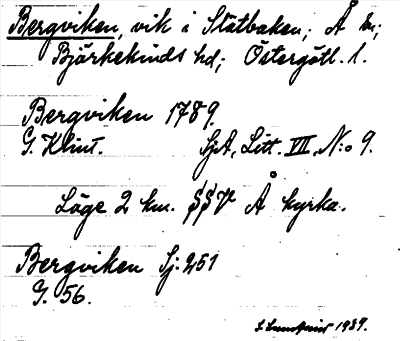 Bergviken, vik i Slätbaken; Å sn;
Björkekinds hd; Östergötl. l.
Bergviken 1789.
G. Klint. SjA, Litt. VII, N:o 9.
Läge 2 km. SSV Å kyrka.
Bergviken Sj. 251
G. 56.
1937.